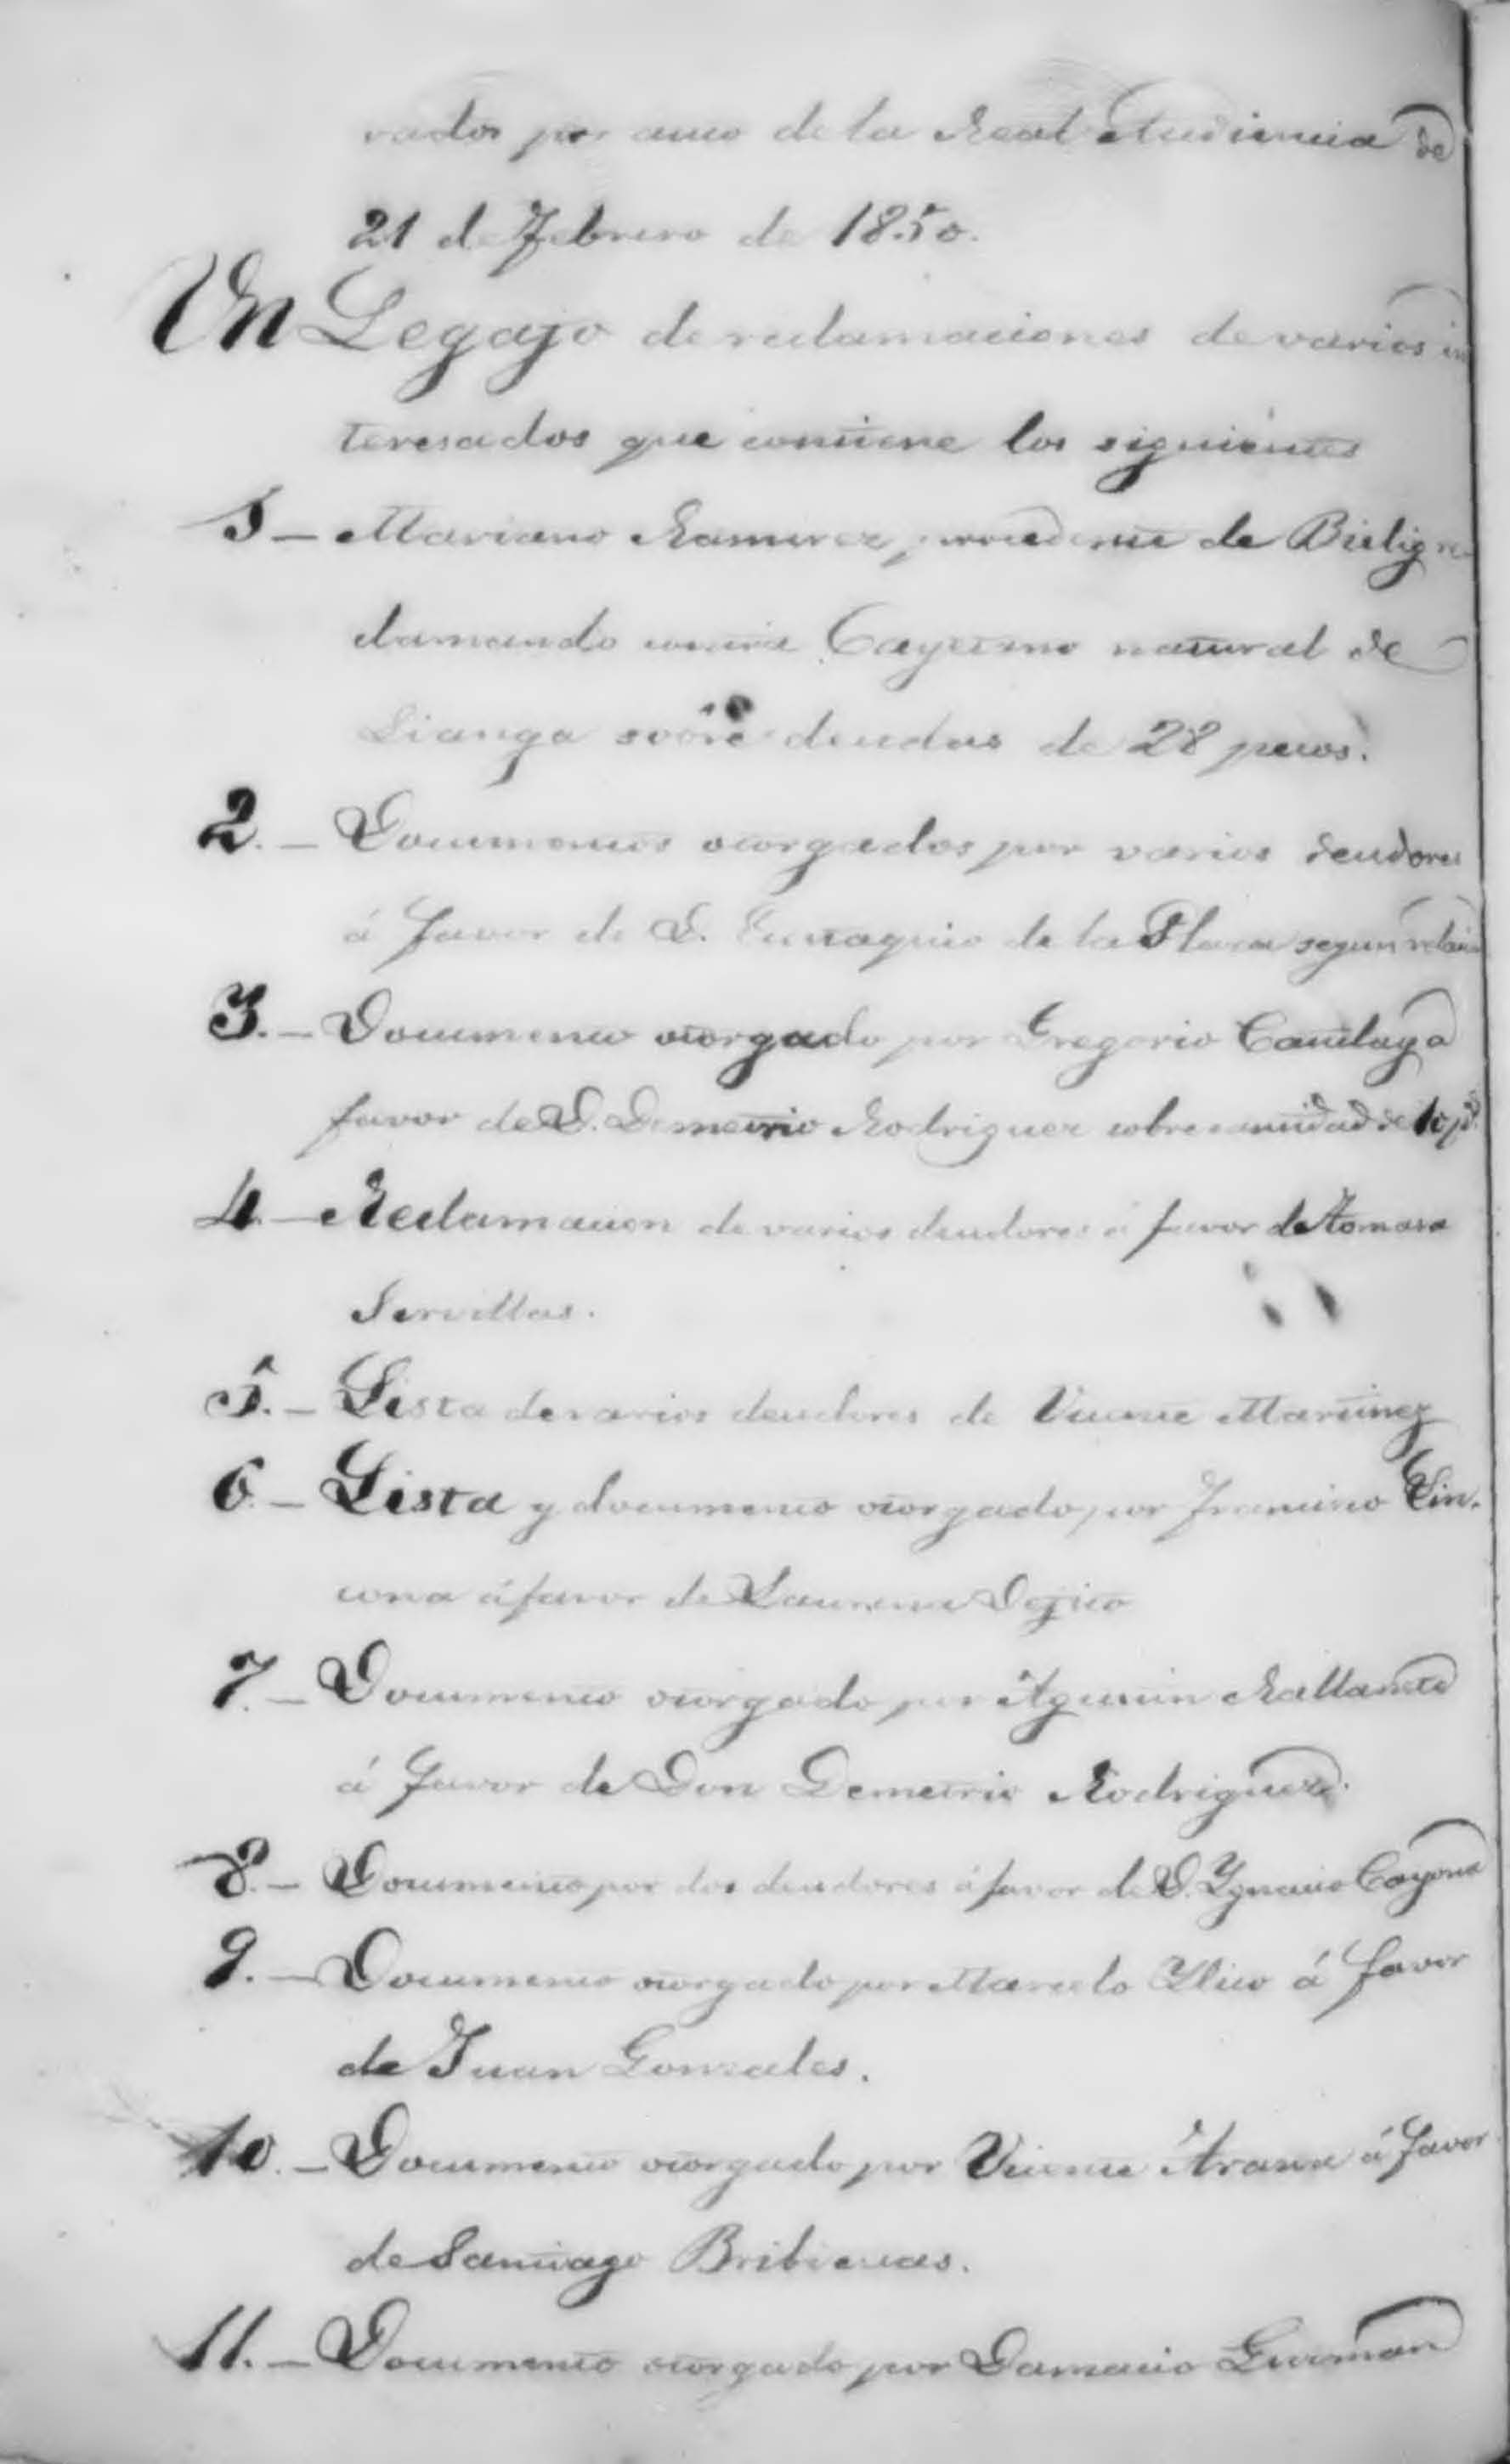 vados por auto de la Real Audiencia de
21 de Febrero de 1850.
Un Legajo de reclamaciones de varios in
teresados que contiene los siguientes
1 — Mariano Ramirez, procedente de Bislig re-
clamando contra Cayetano natural de
Lianga sobre deudas de 28 pesos.
2. — Documentos otorgados por varios deudores
á favor de D. Eustaquio de la Plaza segun relacion
3. — Documento otorgado por Gregorio Cantilaya
favor de D. Demetrio Rodriguez sobre cantidad de 10 p.s
4. — Reclamacion de varios deudores á favor de Tomasa
Servillas.
5. — Lista de varios deudores de Vicente Martinez
6. — Lista y documento otorgado por Francisco
á favor de
7. — Documento otorgado por Agustin
á favor de Don Demetrio Rodriguez.
8. — Documento por dos deudores á favor de D. Ygnacio Cayona
9. — Documento otorgado por Marcelo á favor
de Juan Gonzales.
10. — Documento otorgado por Vicente Arana á favor
de Santiago Bribiescas.
11. — Documento otorgado por Damacio Guzman